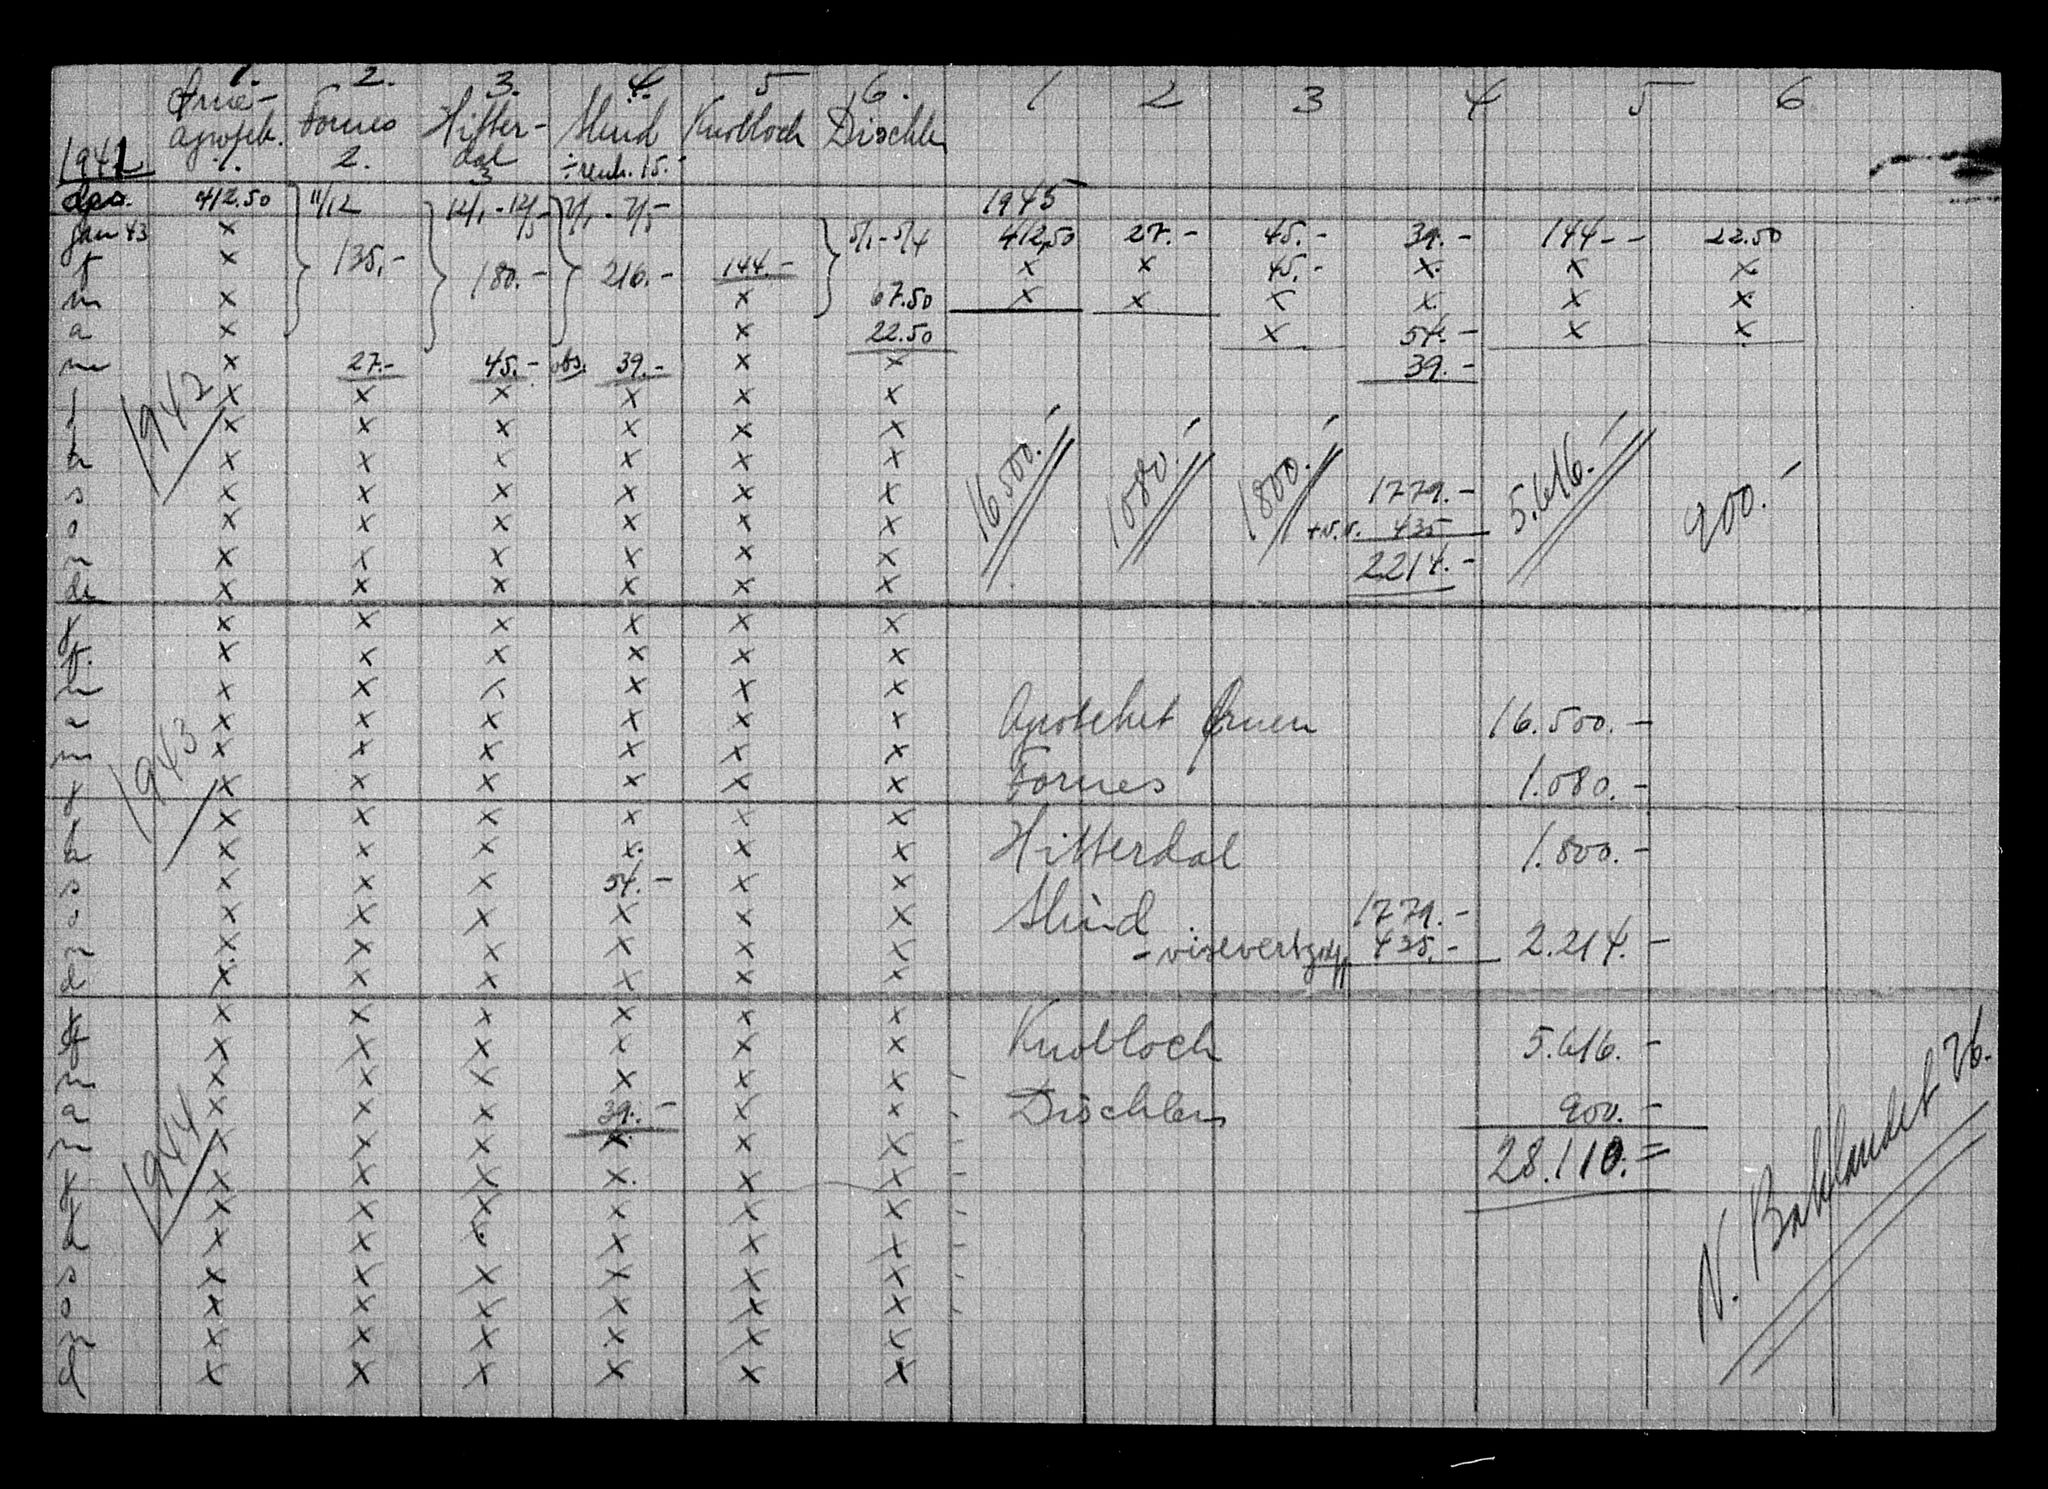 1. 2. 3. 4. 5 6. 1 2 3 4 5 6
Ørne- Fornes Hitter- Slind Knobloch Dischler
apotek. dal
1941 1. 2. 3 ÷ renh. 15.-
des. 412.50 11/12 12/1 - 12/5 7/1 - 7/5 1945
jan 43 x 5/1 - 5/4 412,50 27.- 45.- 39.- 144.- 22.50
f x 135,- 180.- 216.- 144.- x x 45.- x x x
m x x 67.50 x x x x x x
a x x 22.50 x 54.- x x
m x 27.- 45.- obs. 39.- x x 39.-
1942
j x x x x x x
j x x x x x x
a x x x x x x
s x x x x x x
o x x x x x x
n x x x x x x
de x x x x x x
16500.- 1080.- 1800.- 1779.- 5.616.- 900.-
+v.v. 435
2214.-
j x x x x x x
f. x x x x x x
m x x x x x x
a x x x x x x
m x x x x x x
1943
j x x x x x x
x x x x x x
a x x x x x x
s x x x 54.- x x
o x x x x x x
n x x x x x x
d x x x x x x
j x x x x x x
f x x x x x x
m x x x x x x
a x x x 39.- x x
m x x x x x x
1944
j x x x x x x
j x x x x x x
a x x x x x x
s x x x x x x
o x x x x x x
n x x x x x x
d x x x x x x
Apotheket Ørnen 16.500.-
Fornes 1.080.-
Hitterdal 1.800.-
Slind 1779.-
435.- 2.214.-
Knobloch 5.616.-
Dischler 900.-
28.110.=
N. Bakklandet 26.